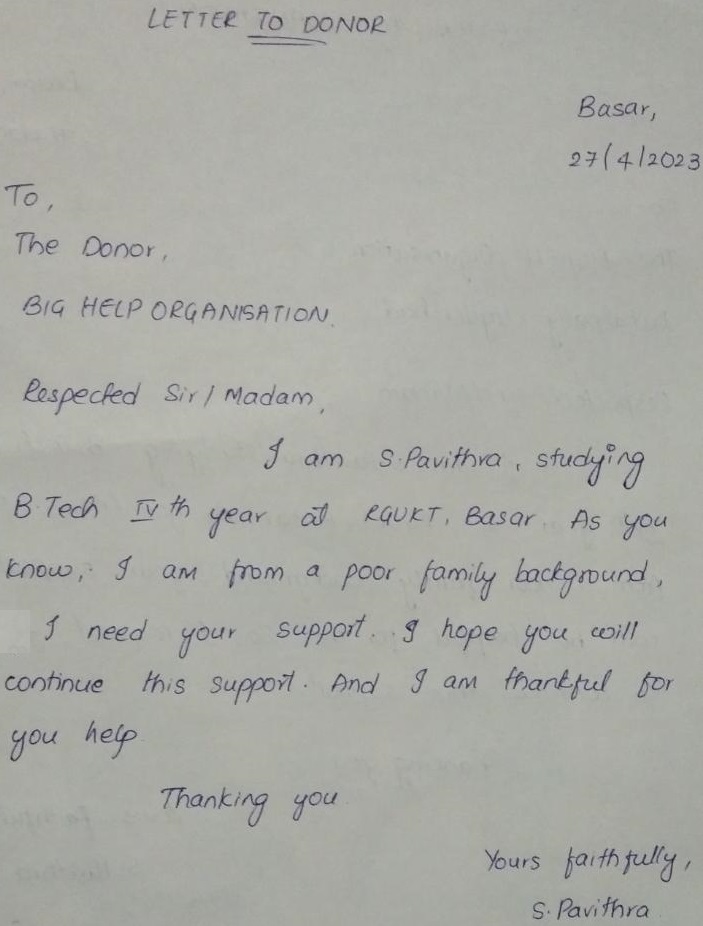 LETTER TO DONOR
Basar,
27/4/2023
To,
The Donor,
BIG HELP ORGANISATION.
Respected Sir/Madam,
I am S.Pavithra, studying
B.Tech IVth year at RGUKT, Basar. As you
know, I am from a poor family background,
I need your support. I hope you will
continue this support. And I am thankful for
you help
Thanking you.
Yours faithfully,
S.Pavithra